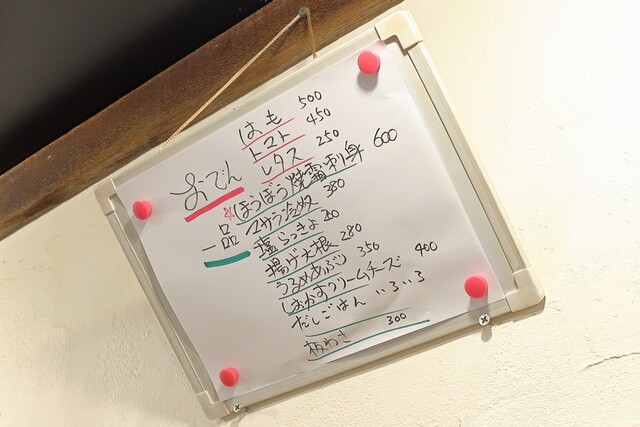 おでん
はも 500
トマト 450
レタス 250
一品
ほうぼう焼霜刺身 600
マサラ冷奴 380
塩らっきょ
揚げ大根 280
うるめあぶり 350
しおかすクリームチーズ 400
だしごはん いろいろ
板わさ 300